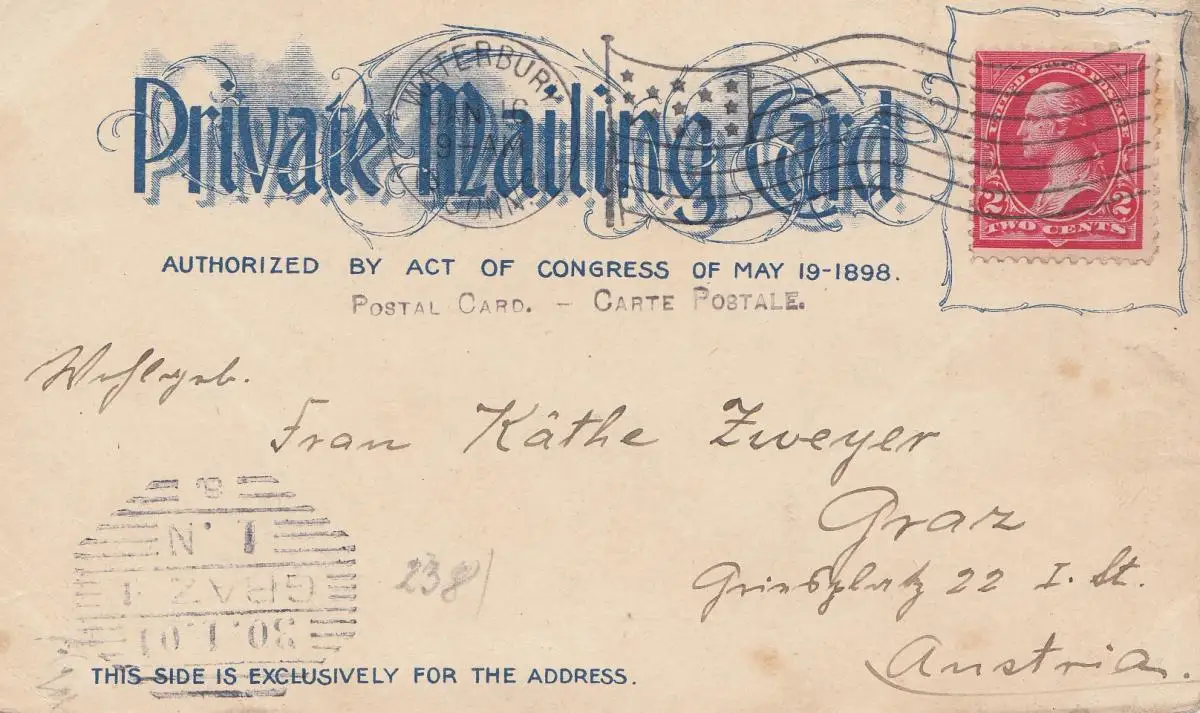 WATERBURY
JAN 16
9-AM
CONN.
Private Mailing Card
UNITED STATES POSTAGE
2 2
TWO CENTS
AUTHORIZED BY ACT OF CONGRESS OF MAY 19-1898.
POSTAL CARD. - CARTE POSTALE.
Wohlgeb.
Frau Käthe Zweyer
Graz
Griesplatz 22 I. St.
Austria.
8
N. 1
GRAZ 1
30.1.01
238/
THIS SIDE IS EXCLUSIVELY FOR THE ADDRESS.